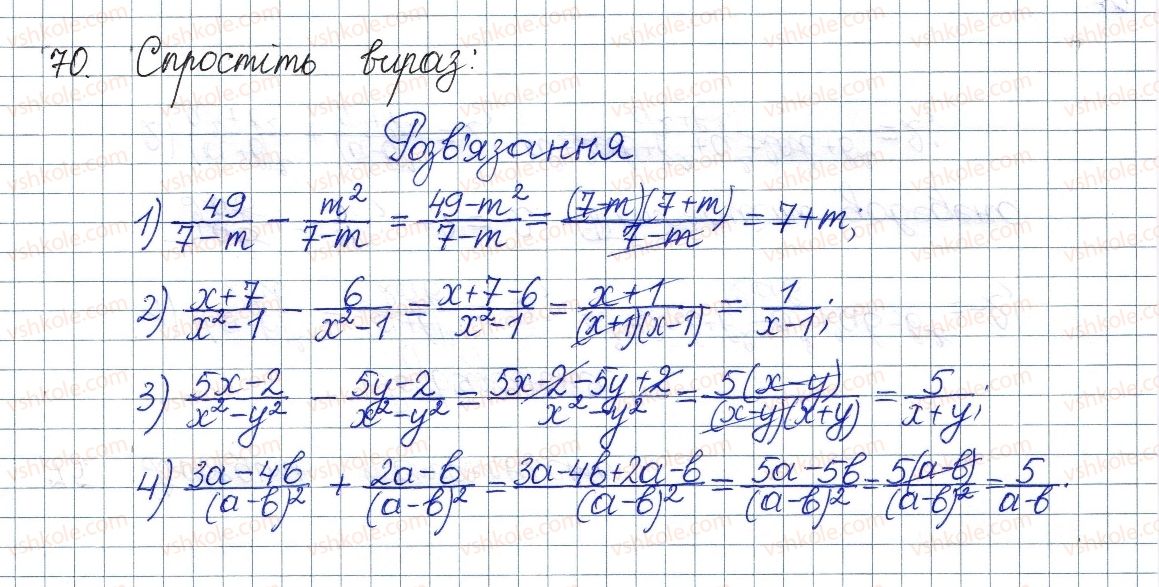 70. Спростіть вираз:
Розв'язання
1) 49/(7-m) - m²/(7-m) = (49-m²)/(7-m) = (7-m)(7+m)/(7-m) = 7+m;
2) (x+7)/(x²-1) - 6/(x²-1) = (x+7-6)/(x²-1) = (x+1)/((x+1)(x-1)) = 1/(x-1);
3) (5x-2)/(x²-y²) - (5y-2)/(x²-y²) = (5x-2-5y+2)/(x²-y²) = 5(x-y)/((x-y)(x+y)) = 5/(x+y);
4) (3a-4b)/(a-b)² + (2a-b)/(a-b)² = (3a-4b+2a-b)/(a-b)² = (5a-5b)/(a-b)² = 5(a-b)/(a-b)² = 5/(a-b).